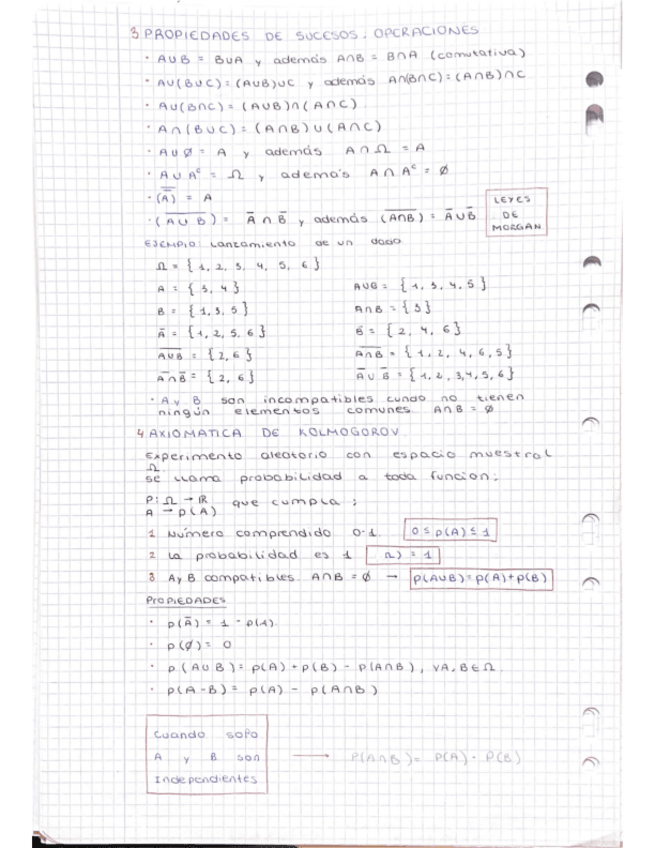 3 PROPIEDADES DE SUCESOS. OPERACIONES
· A∪B = B∪A y además A∩B = B∩A (comutativa)
· A∪(B∪C) = (A∪B)∪C y además A∩(B∩C) = (A∩B)∩C
· A∪(B∩C) = (A∪B)∩(A∩C).
· A∩(B∪C) = (A∩B)∪(A∩C)
· A∪Ø = A y además A∩Ω = A
· A∪Aᶜ = Ω y además A∩Aᶜ = Ø
· (A̿) = A
· (A̅ ̅∪̅ ̅B̅) = A̅ ∩ B̅ y además (A̅∩̅B̅) = A̅∪B̅
LEYES
DE
MORGAN
EJEMPLO: Lanzamiento de un dado
Ω = {1, 2, 3, 4, 5, 6}
A = {3, 4} A∪B = {1, 3, 4, 5}
B = {1, 3, 5} A∩B = {3}
A̅ = {1, 2, 5, 6} B̅ = {2, 4, 6}
A̅∪̅B̅ = {2, 6} A̅∩̅B̅ = {1, 2, 4, 6, 5}
A̅∩B̅ = {2, 6} A̅∪B̅ = {1, 2, 3, 4, 5, 6}
· A y B son incompatibles cundo no tienen
ningún elementos comunes A∩B = Ø
4 AXIOMATICA DE KOLMOGOROV
Experimento aleatorio con espacio muestral
Ω
se llama probabilidad a toda funcion:
P: Ω → ℝ que cumpla:
A → p(A)
1 Número comprendido 0-1. 0 ≤ p(A) ≤ 1
2 La probabilidad es 1 Ω) = 1
3 A y B compatibles. A∩B = Ø → p(A∪B) = p(A) + p(B)
PROPIEDADES
· p(A̅) = 1 - p(A).
· p(Ø) = 0
· p(A∪B) = p(A) + p(B) - p(A∩B), ∀A, B ∈ Ω.
· p(A-B) = p(A) - p(A∩B)
Cuando solo
A y B son
Independientes
→ P(A∩B) = P(A) · P(B)